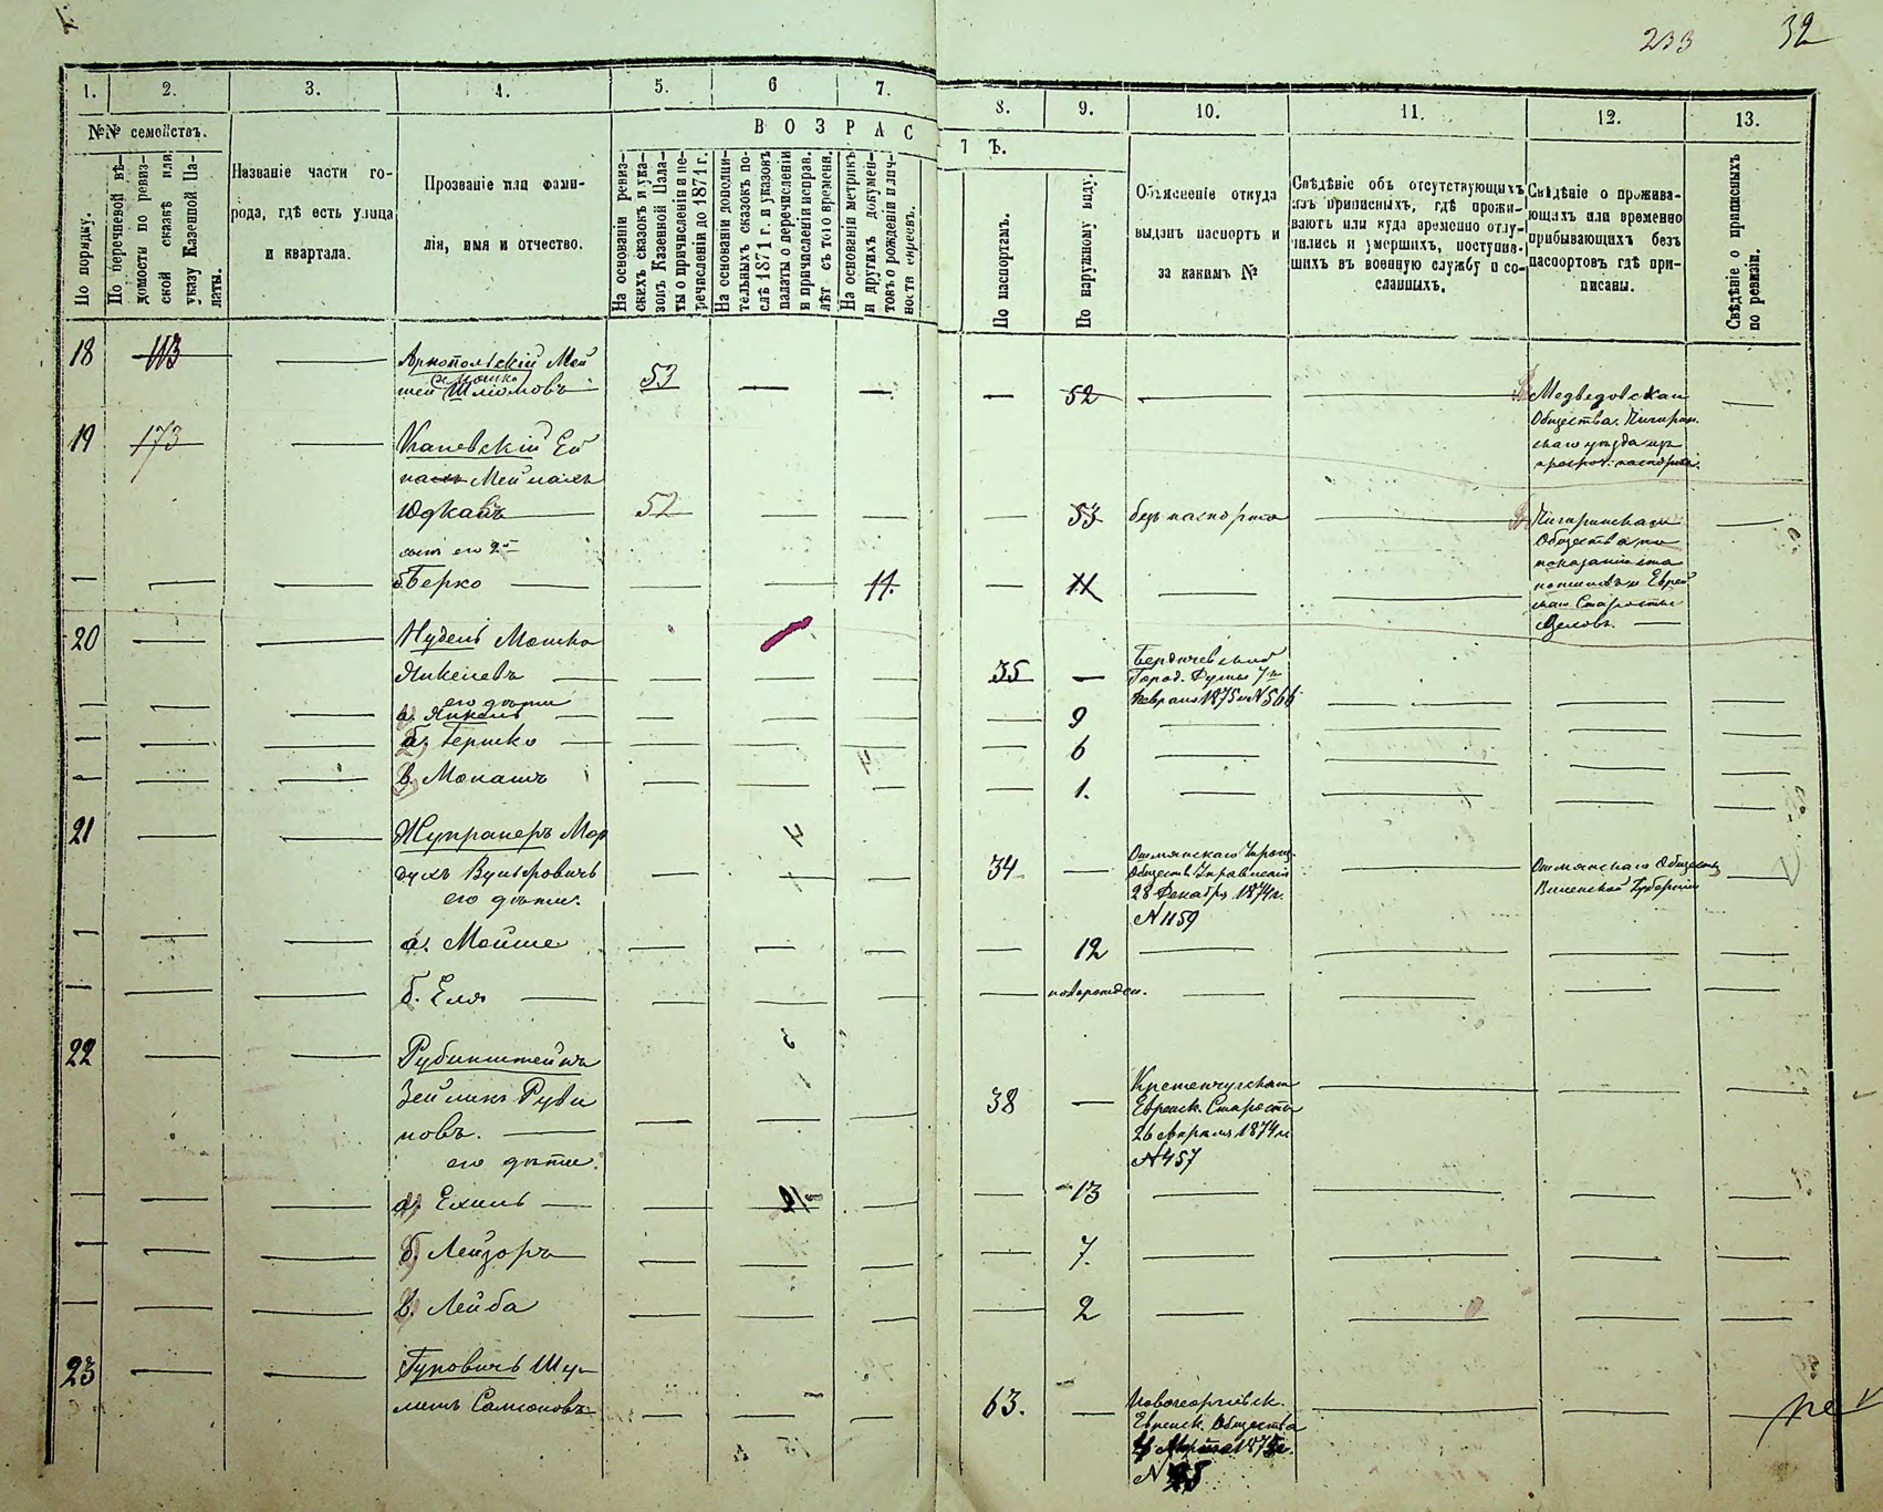 233 32
1. 2. 3. 4. 5. 6 7. 8. 9. 10. 11. 12. 13.
№№ семействъ.
ВОЗРАСТЪ.
По порядку.
По перечневой вѣ-
домости по ревиз-
ской сказкѣ или
указу Казенной Па-
латы.
Названіе части го-
рода, гдѣ есть улица
и квартала.
Прозваніе или фами-
лія, имя и отчество.
На основаніи ревиз-
скихъ сказокъ и ука-
зовъ Казенной Пала-
ты о причисленіи и пе-
речисленіи до 1871 г.
На основаніи дополни-
тельныхъ сказокъ по-
слѣ 1871 г. и указовъ
палаты о перечисленіи
и причисленіи исправ.
лѣт съ того времени.
На основаніи метрикъ
и другихъ докумен-
товъ о рожденіи и лич-
ности евреевъ.
По паспортамъ.
По наружному виду.
Объясненіе откуда
выданъ паспортъ и
за какимъ №
Свѣдѣніе объ отсутствующихъ
изъ приписныхъ, гдѣ прожи-
ваютъ или куда временно отлу-
чились и умершихъ, поступив-
шихъ въ военную службу и со-
сланныхъ.
Свѣдѣніе о прожива-
ющихъ или временно
прибывающихъ безъ
паспортовъ гдѣ при-
писаны.
Свѣдѣніе о приписныхъ
по ревизіи.
18 113 Арнопольскій Мей
Мошко
шей Шліомовъ 53 — — — 52 — — Медведовскаго
Общества. Чигирин-
скаго уѣзда
19 173 Каневскій
Юдкавъ 52 — — — 53 безъ паспорта — Чигиринскаго
сынъ его Общества по
показанію
Еврей
скаго Старосты
— — — б. Берко — — 11. — 11 — —
20 — — Нудель Мошко
Янкелевъ — — — 35 — Бердичевской
Город. Думы 7го
Февраля 1875 г. № 566
его дѣти
— — — а. Янкель — — — — 9 —
— — — б. Гершко — — — — 6 —
— — — в. Монашъ — — — — 1. —
21 — — Жупранеръ Мор
духъ Вульфовичъ — — — 34 — Ошмянскаго Упрощ.
Обществ. Управленія
28 Декабря 1874 г.
№ 1159
Ошмянскаго Общества
Виленской Губерніи
его дѣти.
— — — а. Мойше — — — — 12 —
— — — б. Еля — — — — новорожден. —
22 — — Рубинштейнъ
Зейликъ Руви
новъ. — — — — 38 — Кременчугскаго
Еврейск. Староста
26 Апреля 1874 г.
№ 457
его дѣти.
— — — а) Ехиль — — — — 13 —
— — — б) Лейзоръ — — — — 7. —
— — — в. Лейба — — — — 2 —
23 — — Гуровичъ Шу-
лимъ Самсоновъ — — — 63. — Новогеоргіевск.
Еврейск. Общества